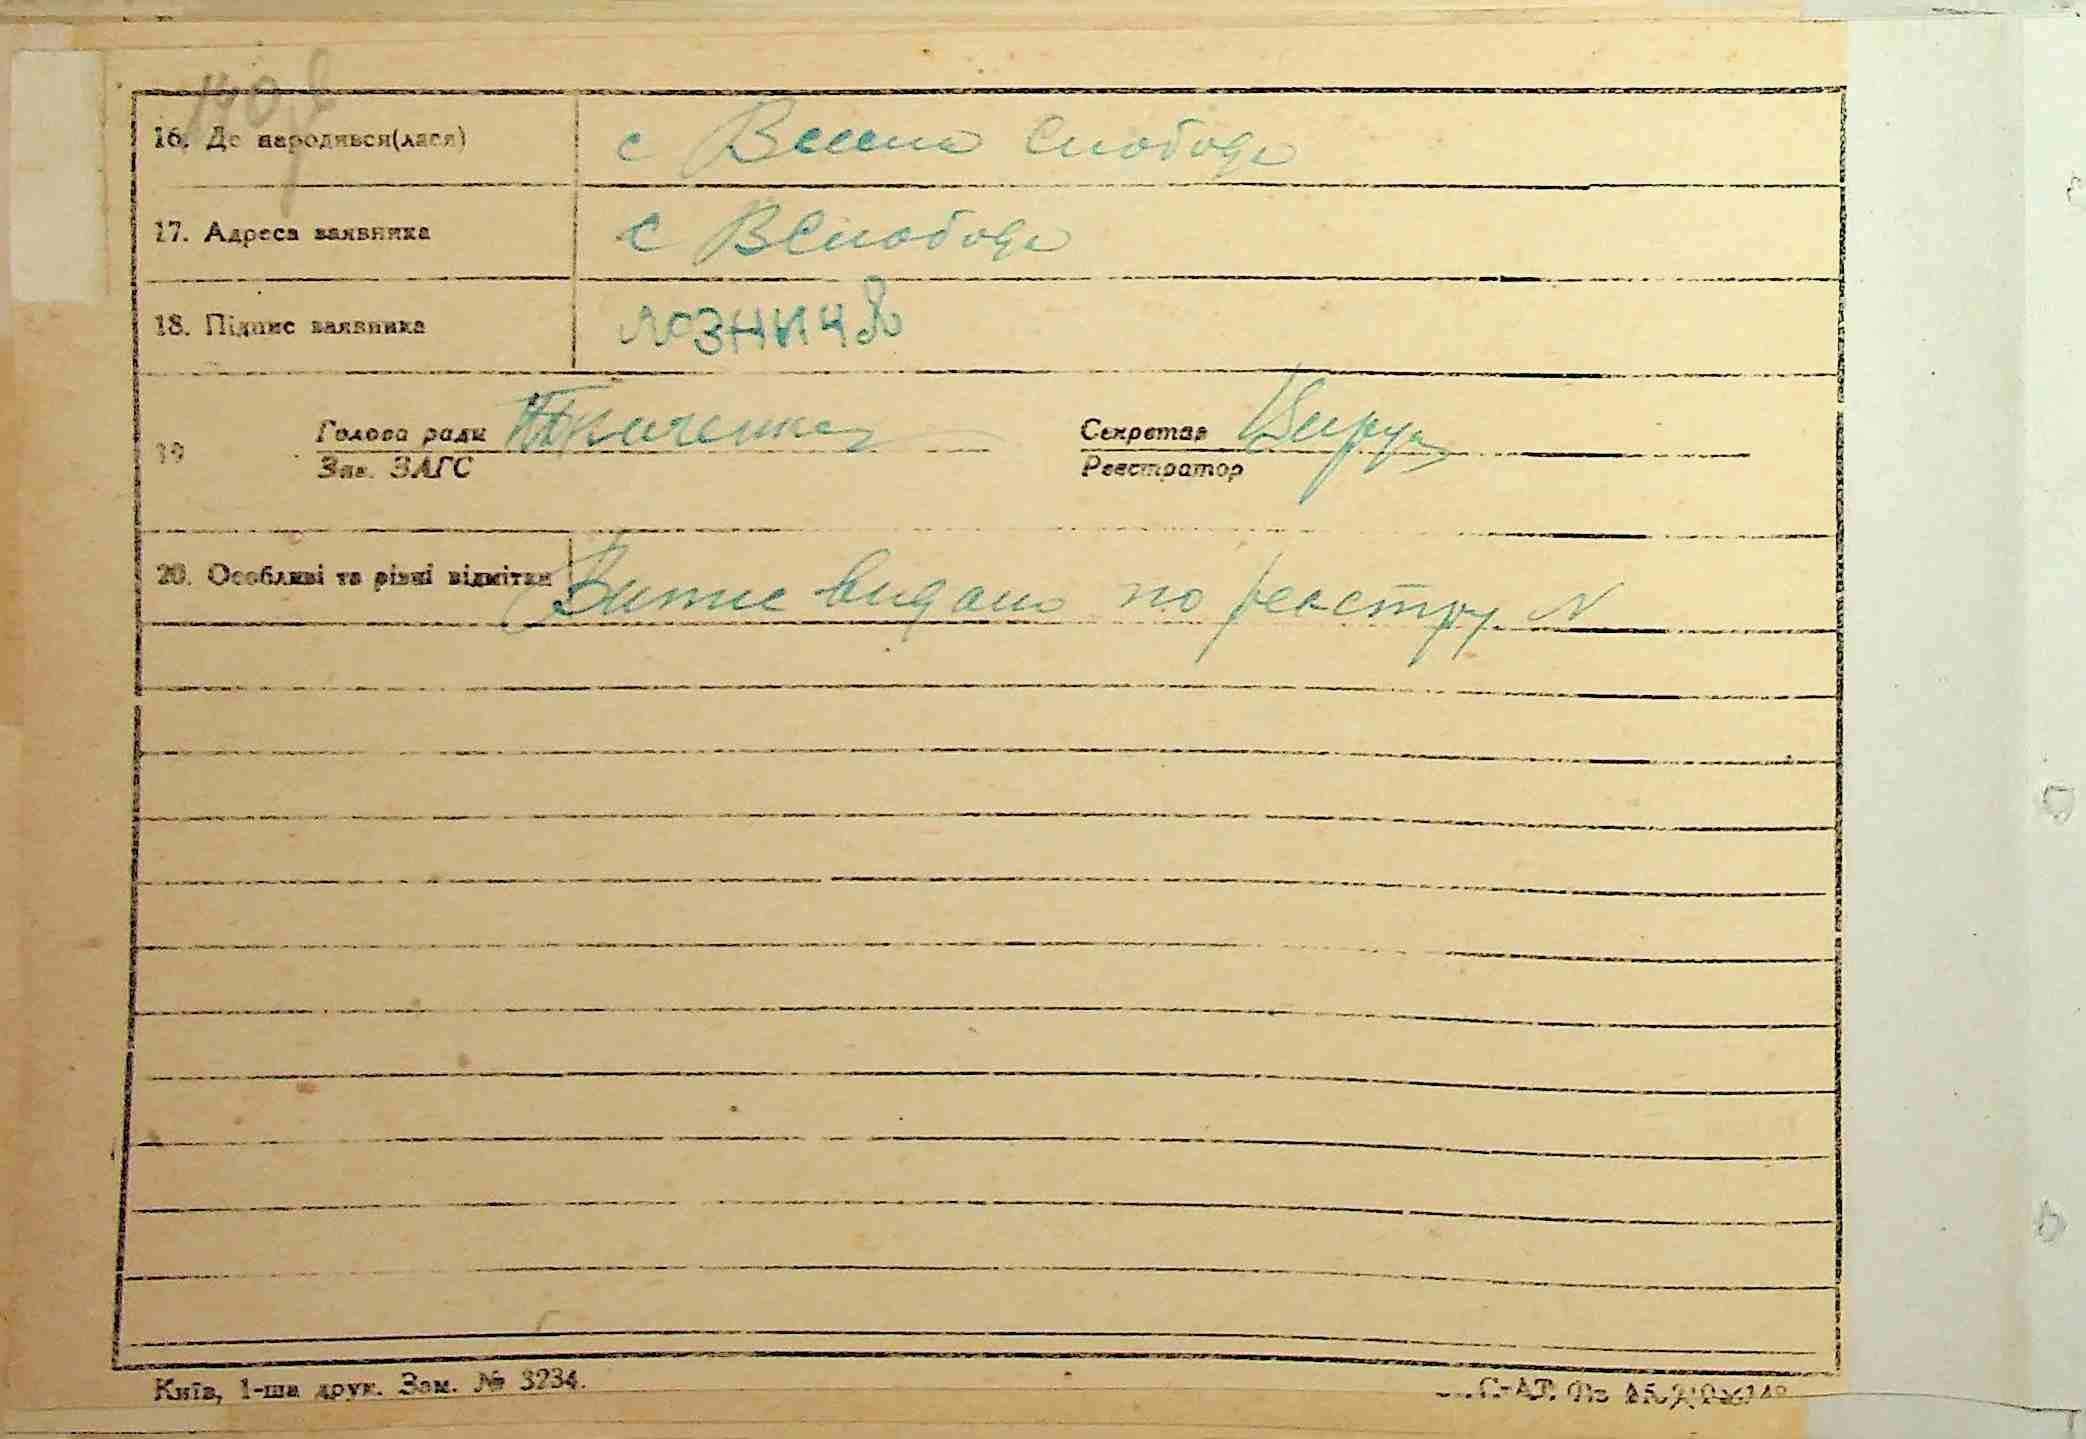 140
16. Де народився(лася) с Велика Слобода
17. Адреса заявника с ВСлобода
18. Підпис заявника ЛОЗНИЧ
19 Голова ради Ткаченко Секретар
Зав. ЗАГС Реєстратор
20. Особливі та різні відмітки Витяг видано по реєстру N
Київ, 1-ша друк. Зам. № 3234.